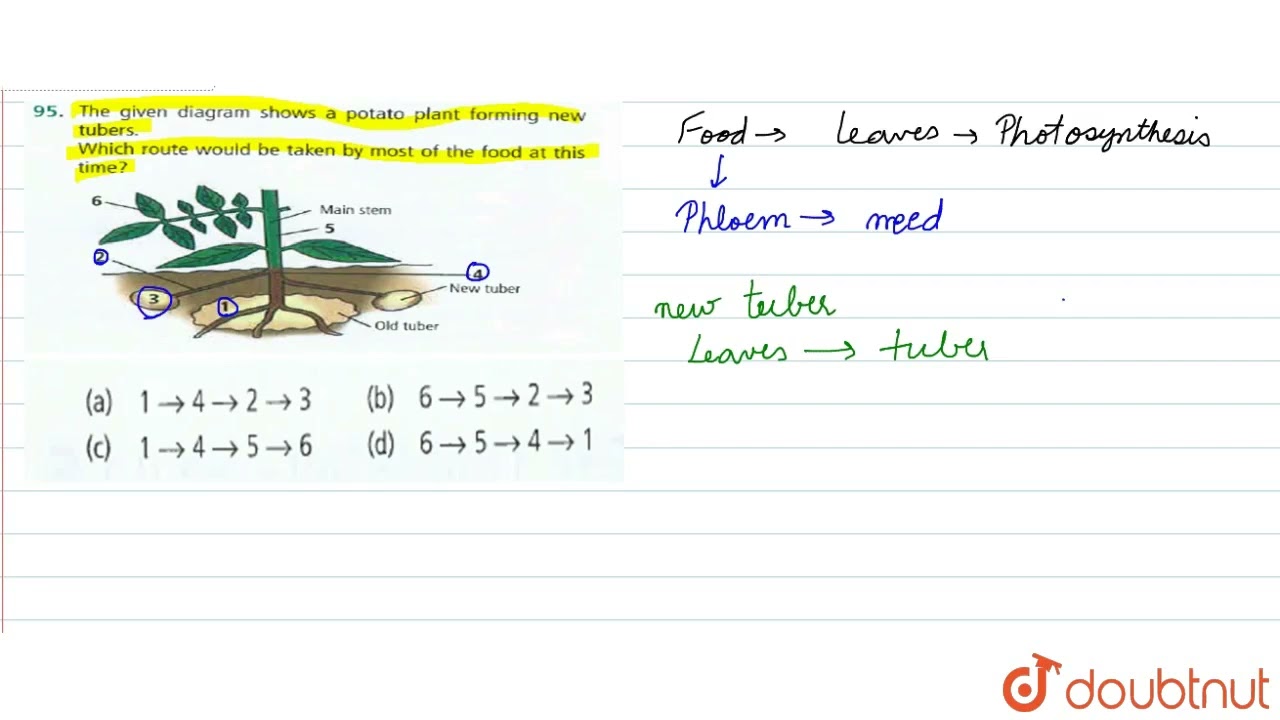 95. The given diagram shows a potato plant forming new
tubers.
Which route would be taken by most of the food at this
time?
6
Main stem
5
2
4
3
New tuber
1
Old tuber
(a) 1→4→2→3 (b) 6→5→2→3
(c) 1→4→5→6 (d) 6→5→4→1
Food → Leaves → Photosynthesis
↓
Phloem → need
new tuber
Leaves → tuber
doubtnut